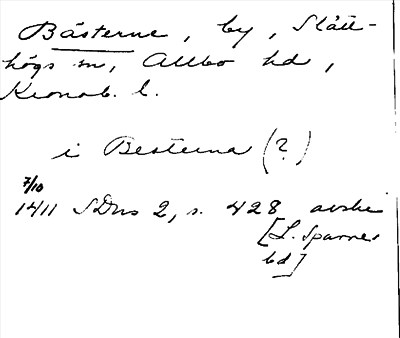 Båsterne, by, Slätt-
högs sn, Allbo hd,
Kronob. l.
i Besterna (?)
7/10
1411 SDns 2, s. 428 avskr
[L. Sparres
bd]